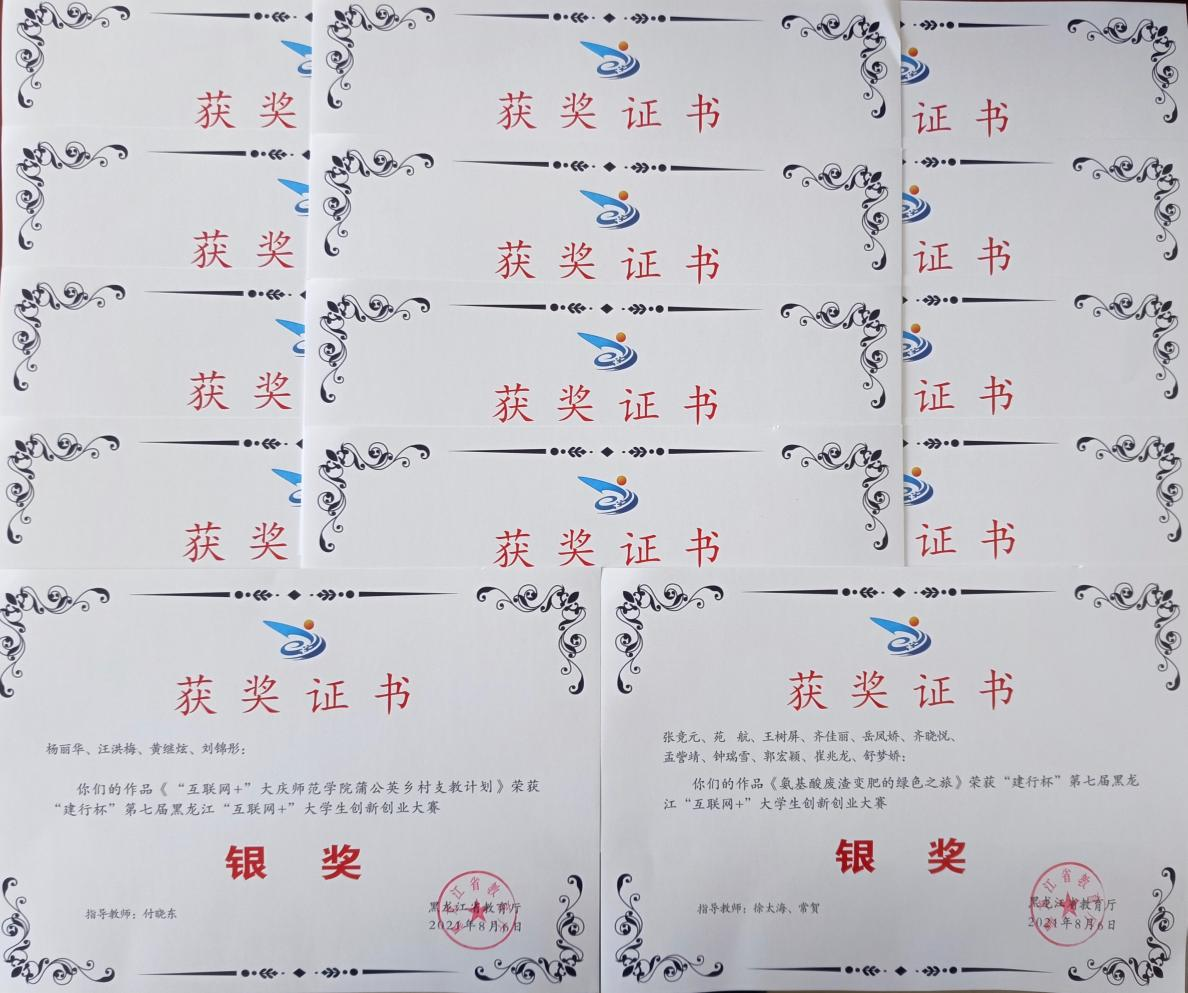 获奖
获奖证书
证书
获奖
获奖证书
证书
获奖
获奖证书
证书
获奖
获奖证书
证书
获奖证书
杨丽华、汪洪梅、黄继炫、刘锦彤：
你们的作品《“互联网+”大庆师范学院蒲公英乡村支教计划》荣获
“建行杯”第七届黑龙江“互联网+”大学生创新创业大赛
银奖
指导教师：付晓东
黑龙江省教育厅
2021年8月6日
获奖证书
张竟元、苑 航、王树屏、齐佳丽、岳凤娇、齐晓悦、
孟喾靖、钟瑞雪、郭宏颖、崔兆龙、舒梦娇：
你们的作品《氨基酸废渣变肥的绿色之旅》荣获“建行杯”第七届黑龙
江“互联网+”大学生创新创业大赛
银奖
指导教师：徐太海、常贺
黑龙江省教育厅
2021年8月6日